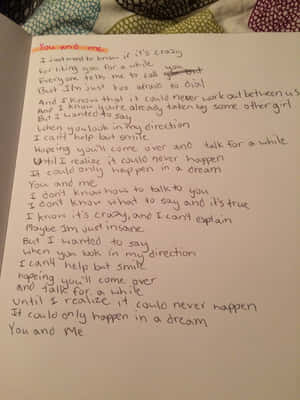 You and me
I just want to know if it's crazy
For liking you for a while
Everyone tells me to call you
But I'm just too afraid to dial
And I know that it could never work out between us
And I know you're already taken by some other girl
But I wanted to say
When you look in my direction
I can't help but smile
Hopeing you'll come over and talk for a while
Until I realize it could never happen
It could only happen in a dream
You and me
I don't know how to talk to you
I don't know what to say and it's true
I know it's crazy, and I can't explain
Maybe I'm just insane
But I wanted to say
When you look in my direction
I can't help but smile
hopeing you'll come over
and talk for a while
Until I realize it could never happen
It could only happen in a dream
You and Me